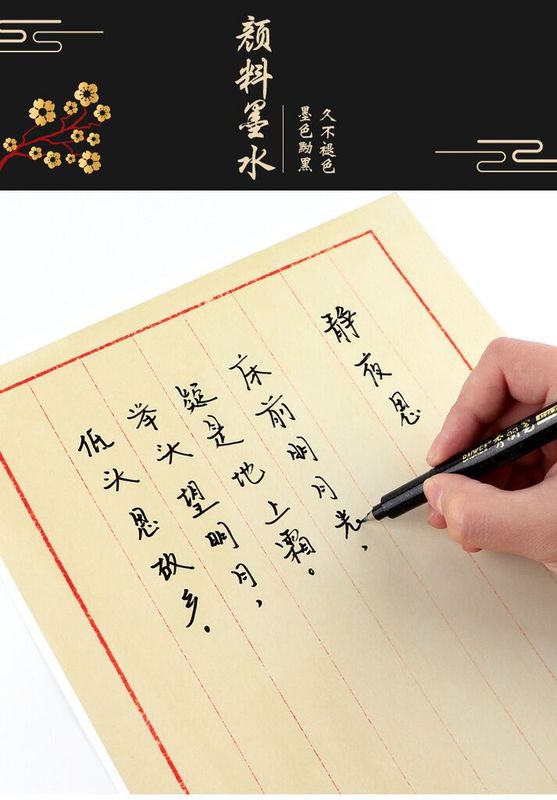 颜料墨水
墨色黝黑
久不褪色
静夜思
床前明月光、
疑是地上霜。
举头望明月,
低头思故乡。
BAOKE